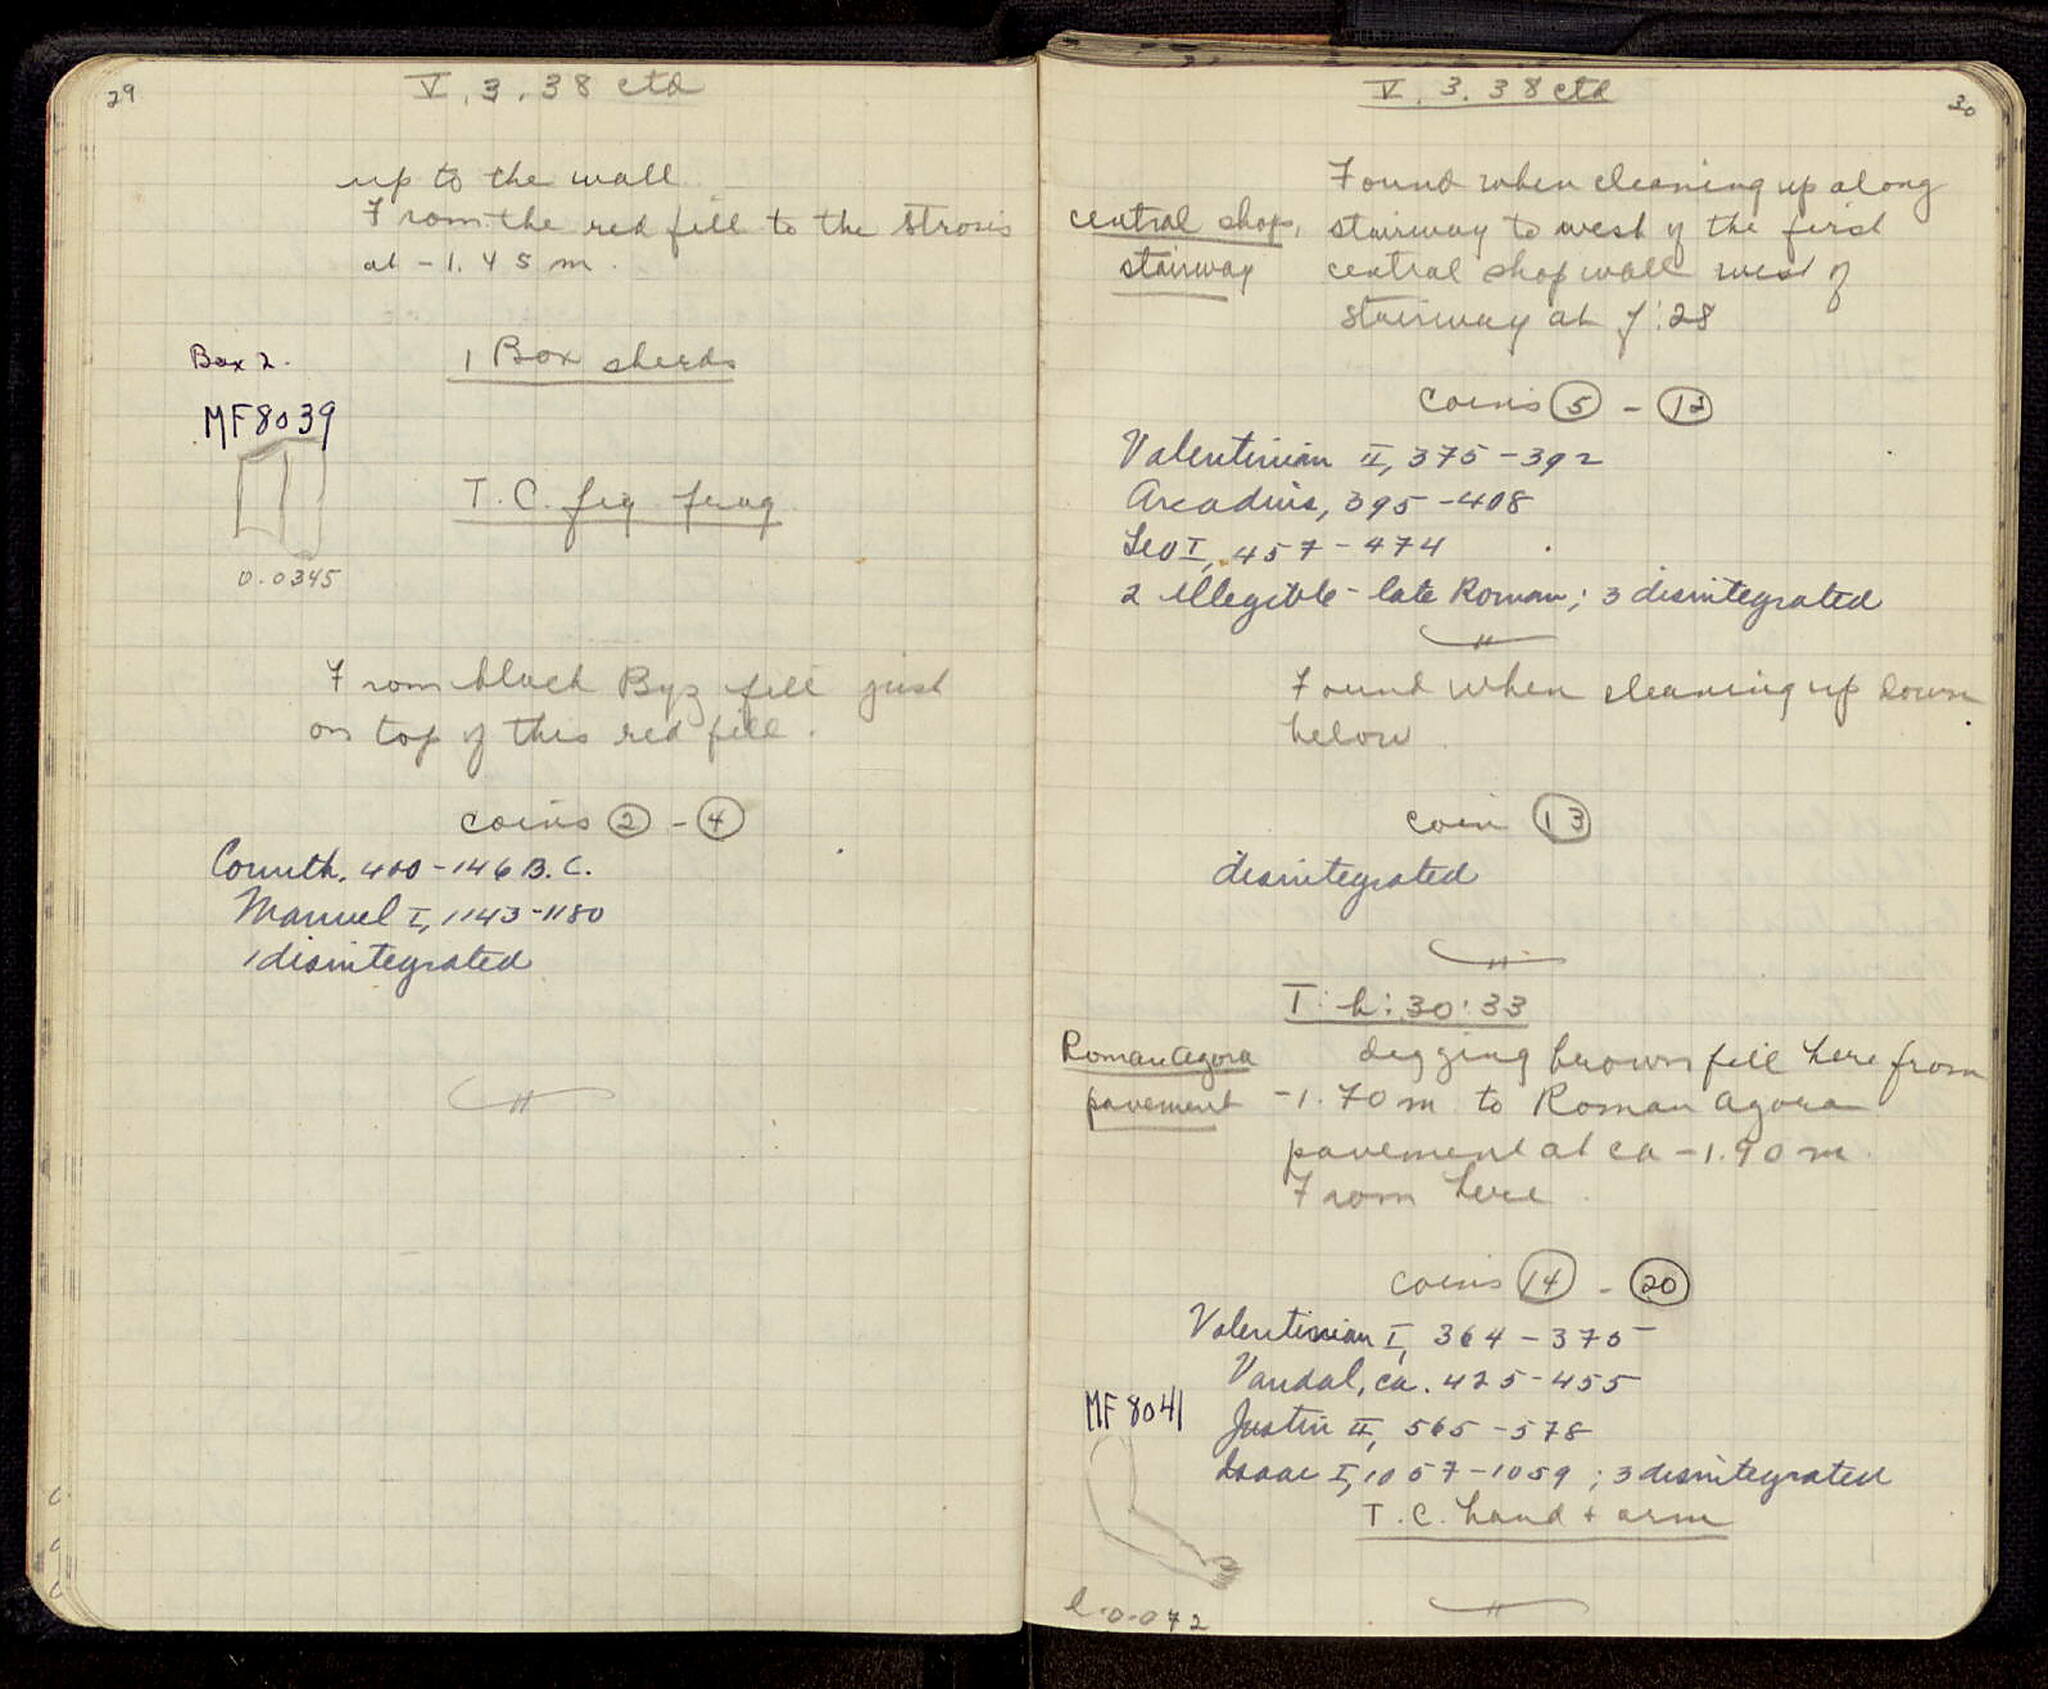 29
V. 3. 38 ctd
up to the wall
From the red fill to the strosis
at - 1.45 m.
Box 2.
1 Box sherds
MF8039
T.C. fig frag
0.0345
From black Byz fill just
on top of this red fill.
coins 2 - 4
Corinth, 400-146 B.C.
Manuel I, 1143-1180
1 disintegrated
30
V. 3. 38 ctd
Found when cleaning up along
central shop, stairway to west of the first
stairway central shop wall west of
stairway at f:28
coins 5 - 12
Valentinian II, 375-392
Arcadius, 395-408
Leo I, 457-474
2 illegible - late Roman; 3 disintegrated
Found when cleaning up down
below.
coin 13
disintegrated
T: h: 30: 33
Roman Agora digging brown fill here from
pavement -1.70 m to Roman Agora
pavement at ca -1.90 m.
From here.
coins 14 - 20
Valentinian I, 364-375
Vandal, ca. 425-455
MF 8041
Justin II, 565-578
Isaac I, 1057-1059; 3 disintegrated
T.C. hand + arm
l-0.072